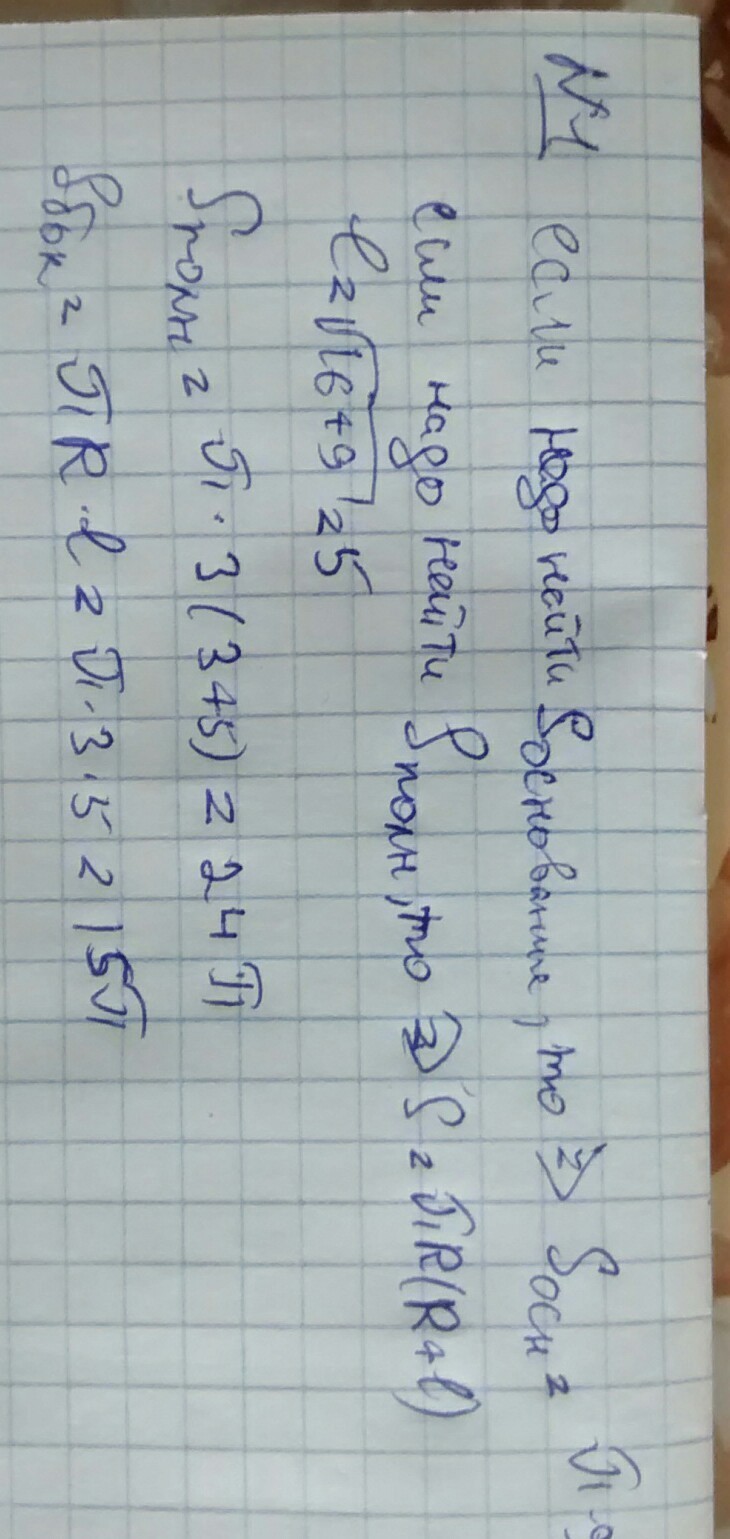 №1 если надо найти Sоснование, то => Sосн =
если надо найти Sполн, то => S = πR(R+l)
l = √16+9 = 5
Sполн = π·3(3+5) = 24π
Sбок = πR·l = π·3·5 = 15π